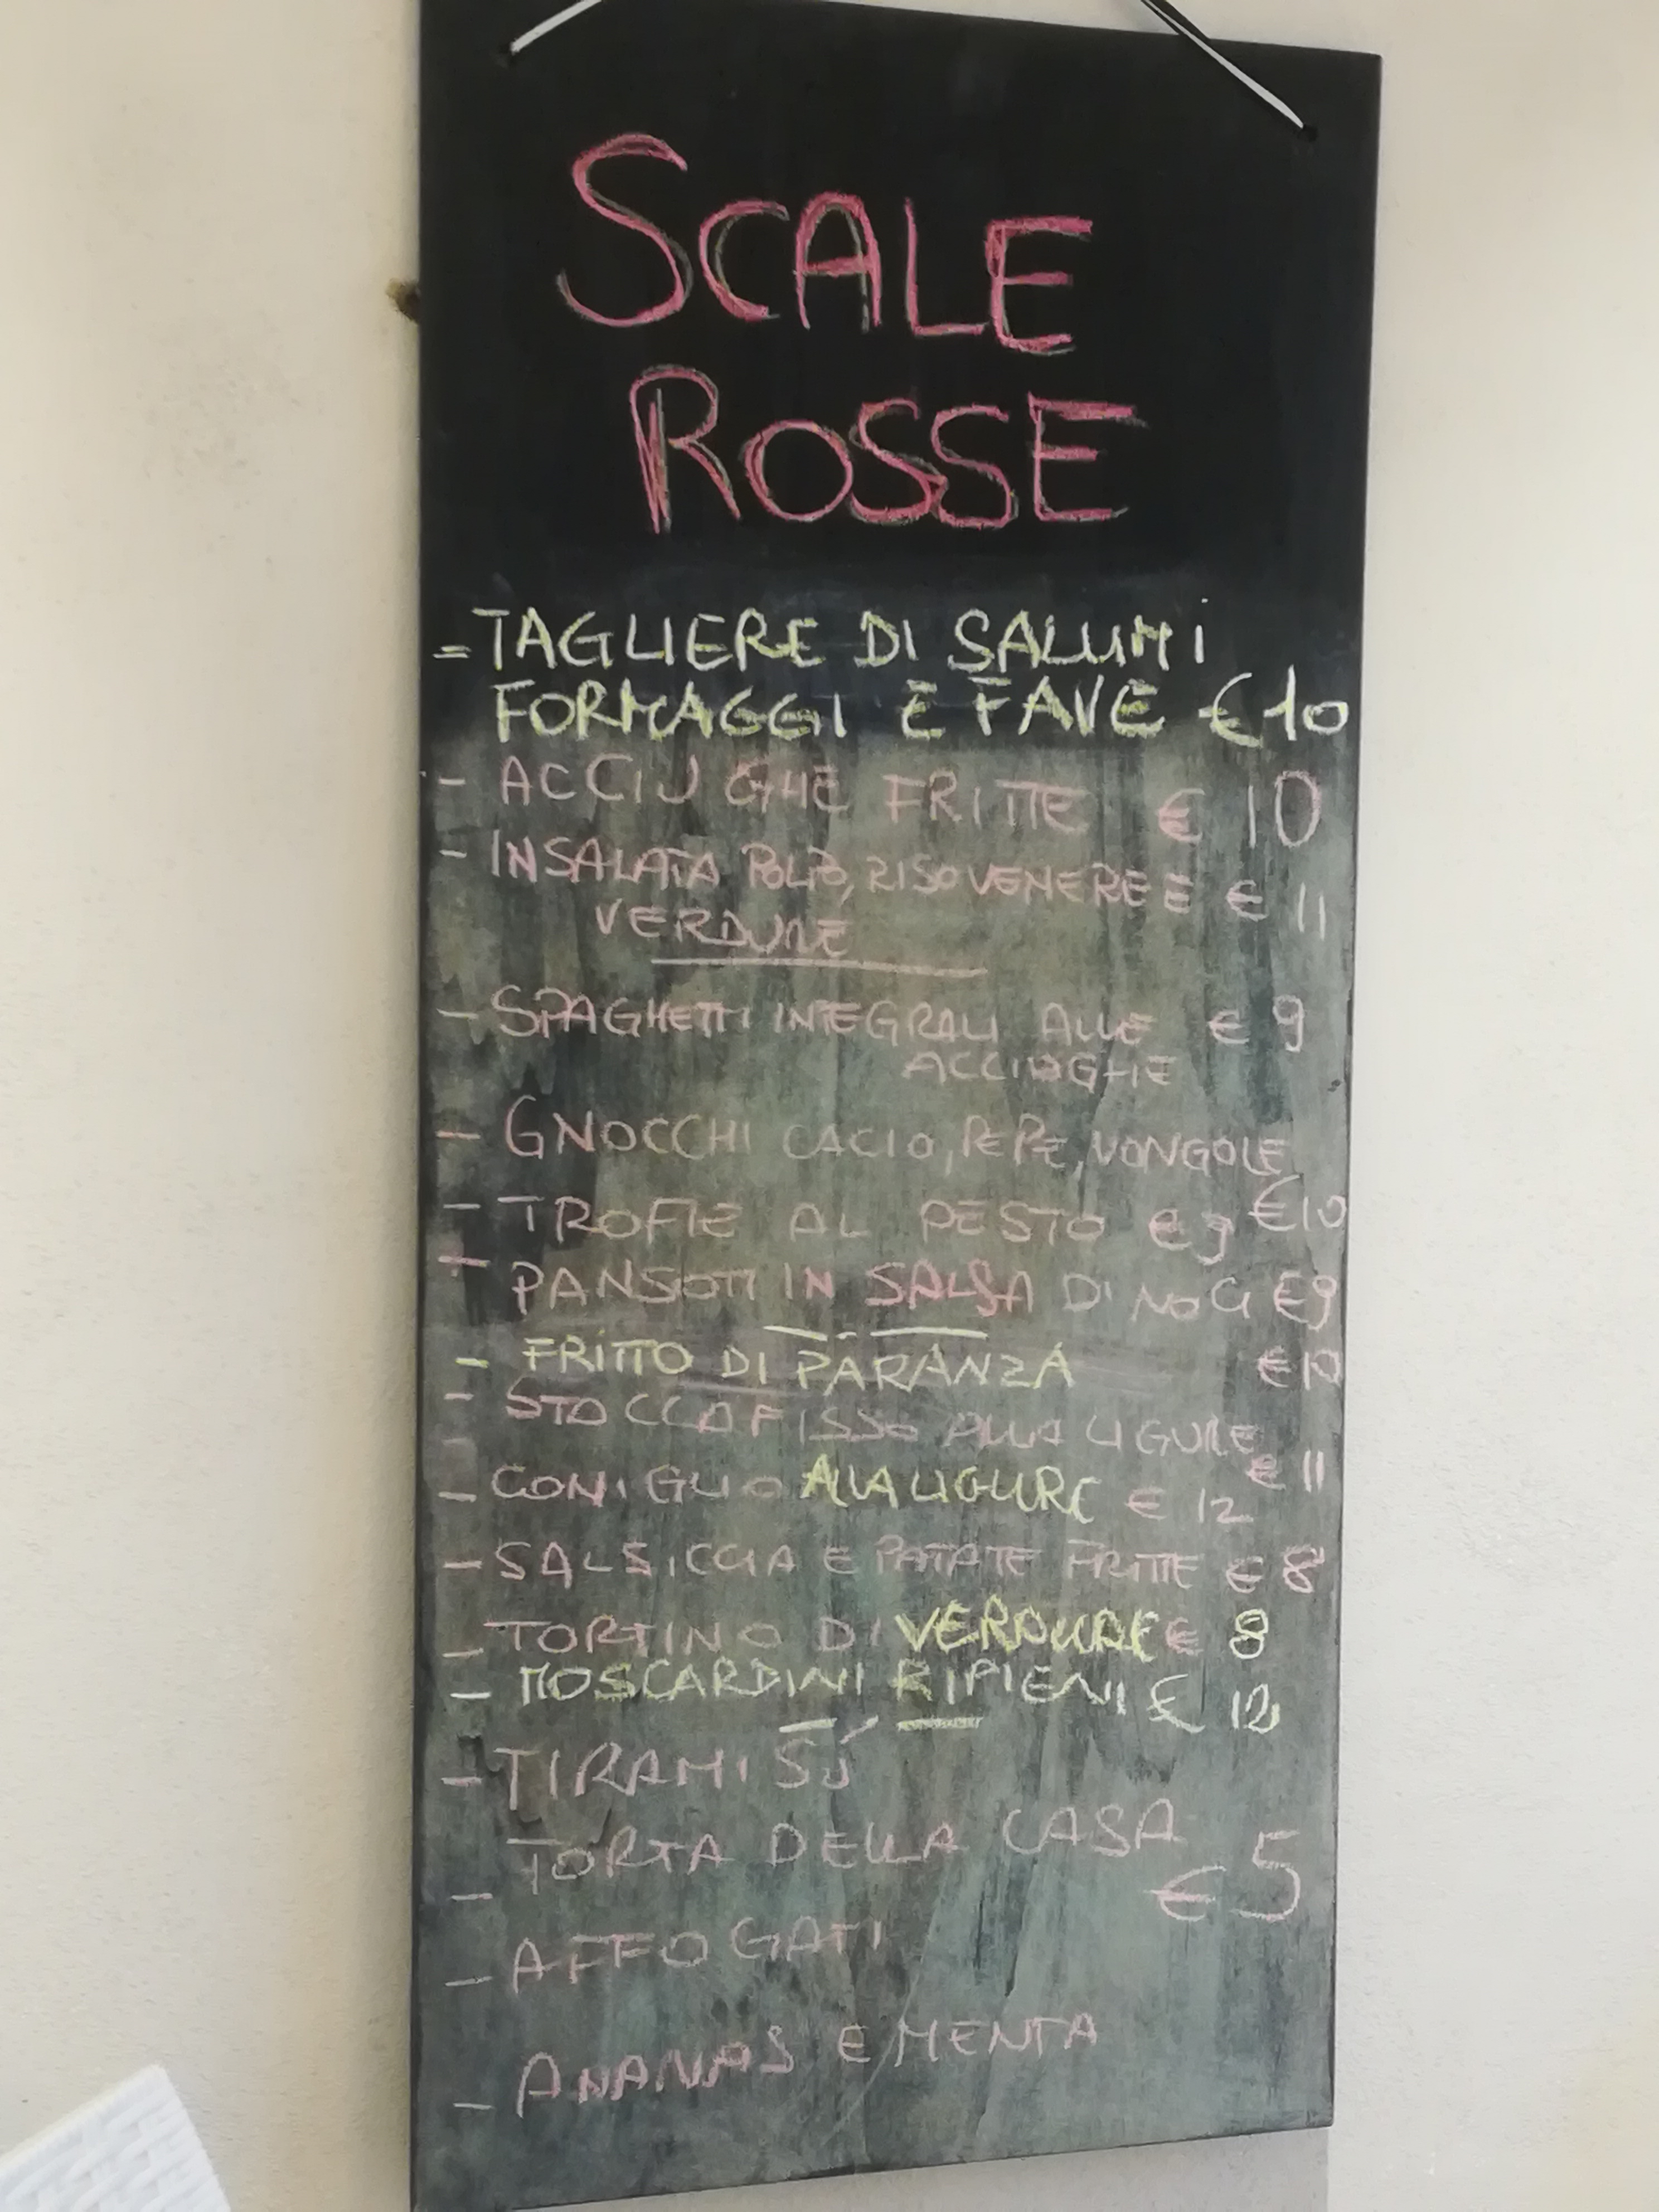 SCALE
ROSSE
= TAGLIERE DI SALUMI
FORMAGGI E FAVE € 10
- ACCIUGHE FRITTE € 10
- INSALATA POLPO, RISO VENERE E € 11
VERDURE
- SPAGHETTI INTEGRALI ALLE € 9
ACCIUGHE
- GNOCCHI CACIO, PEPE, VONGOLE
€ 10
- TROFIE AL PESTO € 9
- PANSOTI IN SALSA DI NOCI € 9
- FRITTO DI PARANZA € 10
- STOCCAFISSO ALLA LIGURE
€ 11
- CONIGLIO ALLA LIGURE € 12
- SALSICCIA E PATATE FRITTE € 8
- TORTINO DI VERDURE € 8
- MOSCARDINI RIPIENI € 12
- TIRAMISÚ
- TORTA DELLA CASA
€ 5
- AFFOGATI
- ANANAS E MENTA